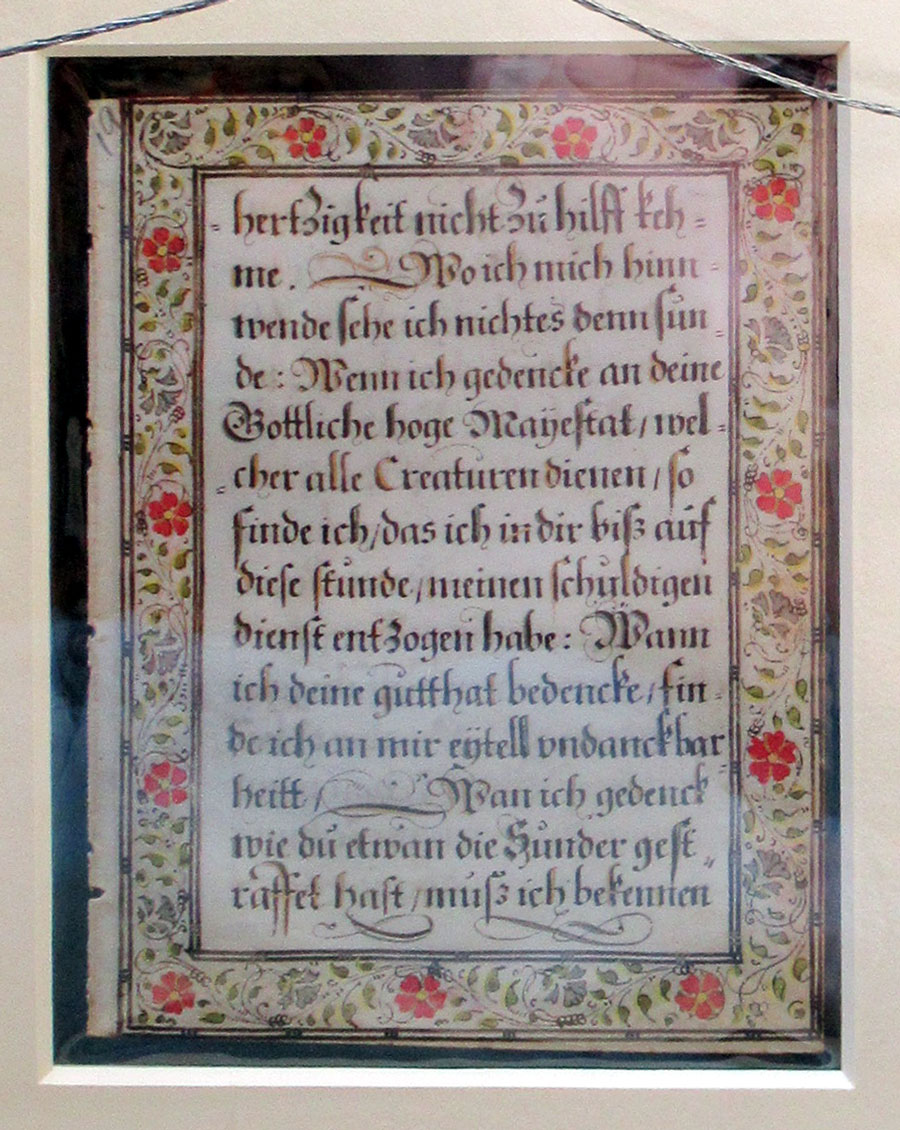 hertzigkeit nicht zu hilff keh=
me. Wo ich mich hinn=
wende sehe ich nichtes denn sün=
de: Wenn ich gedencke an deine
Gottliche hoge Mayestat/ wel=
cher alle Creaturen dienen/ so
finde ich/ das ich in dir biß auf
diese stunde/ meinen schuldigen
dienst entzogen habe: Wann
ich deine gutthat bedencke/ fin=
de ich an mir eytell vndanckbar
heitt/ Wan ich gedenck
wie dü etwan die Sünder gest=
raffet hast/ müß ich bekennen